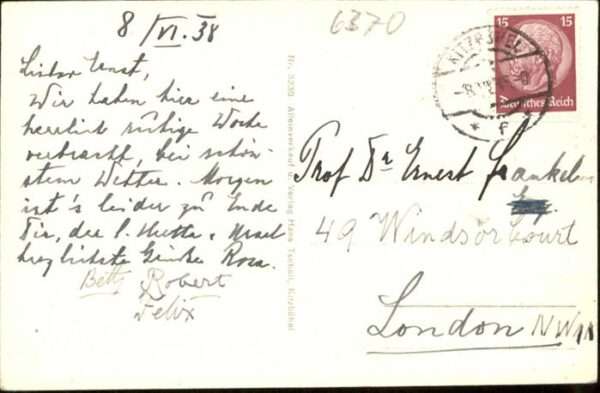 8/VI.38
6370
Lieber Ernst,
Wir haben hier eine
herrlich ruhige Woche
verbracht, bei schön-
stem Wetter. Morgen
ist's leider zu Ende
Dir, der l. Mutter u. Ursel
herzlichste Grüße Rosa.
Betty Robert
Felix
Nr. 3230 Alleinverkauf u. Verlag Hans Tscholl, Kitzbühel
15 15
Deutsches Reich
KITZBÜHEL
Prof Dr Ernest Frankel
Esq.
49 Windsor Court
London NW11